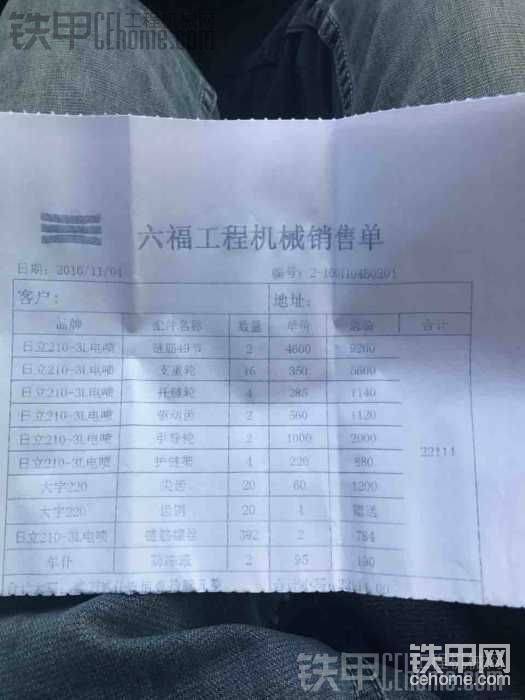 铁甲 工程机械网 CEhome.com
六福工程机械销售单
日期: 2016/11/04 编号:
客户: 地址:
品牌 配件名称 数量 单价 总价 合计
日立210-3L电喷 链筋49节 2 4600 9200
日立210-3L电喷 支重轮 16 350 5600
日立210-3L电喷 托链轮 4 285 1140
日立210-3L电喷 驱动齿 2 560 1120
日立210-3L电喷 引导轮 2 1000 2000
日立210-3L电喷 护链架 4 220 880
22114
大宇220 尖齿 20 60 1200
大宇220 齿销 20 4 赠送
日立210-3L电喷 链筋螺丝 392 2 784
车仆 防冻液 2 95 190
铁甲网
cehome.com